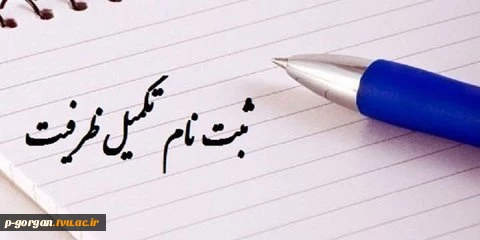 ثبت نام تکمیل ظرفیت
p-gorgan.tvu.ac.ir